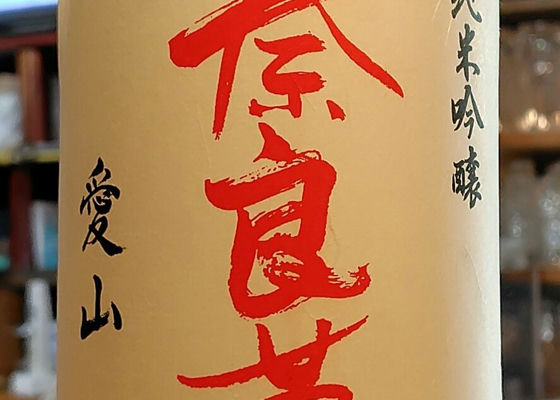 純米吟醸
奈良
愛山